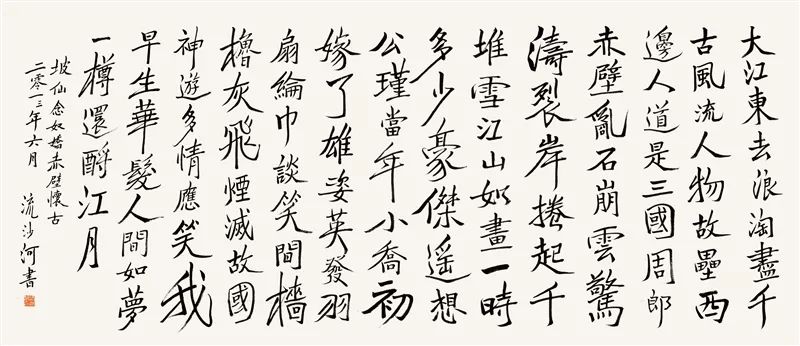 大江東去浪淘盡千
古風流人物故壘西
邊人道是三國周郎
赤壁亂石崩雲驚
濤裂岸捲起千
堆雪江山如畫一時
多少豪傑遥想
公瑾當年小喬初
嫁了雄姿英發羽
扇綸巾談笑間檣
櫓灰飛煙滅故國
神遊多情應笑我
早生華髮人間如夢
一樽還酹江月
坡仙念奴嬌赤壁懷古
二零一三年六月 流沙河書